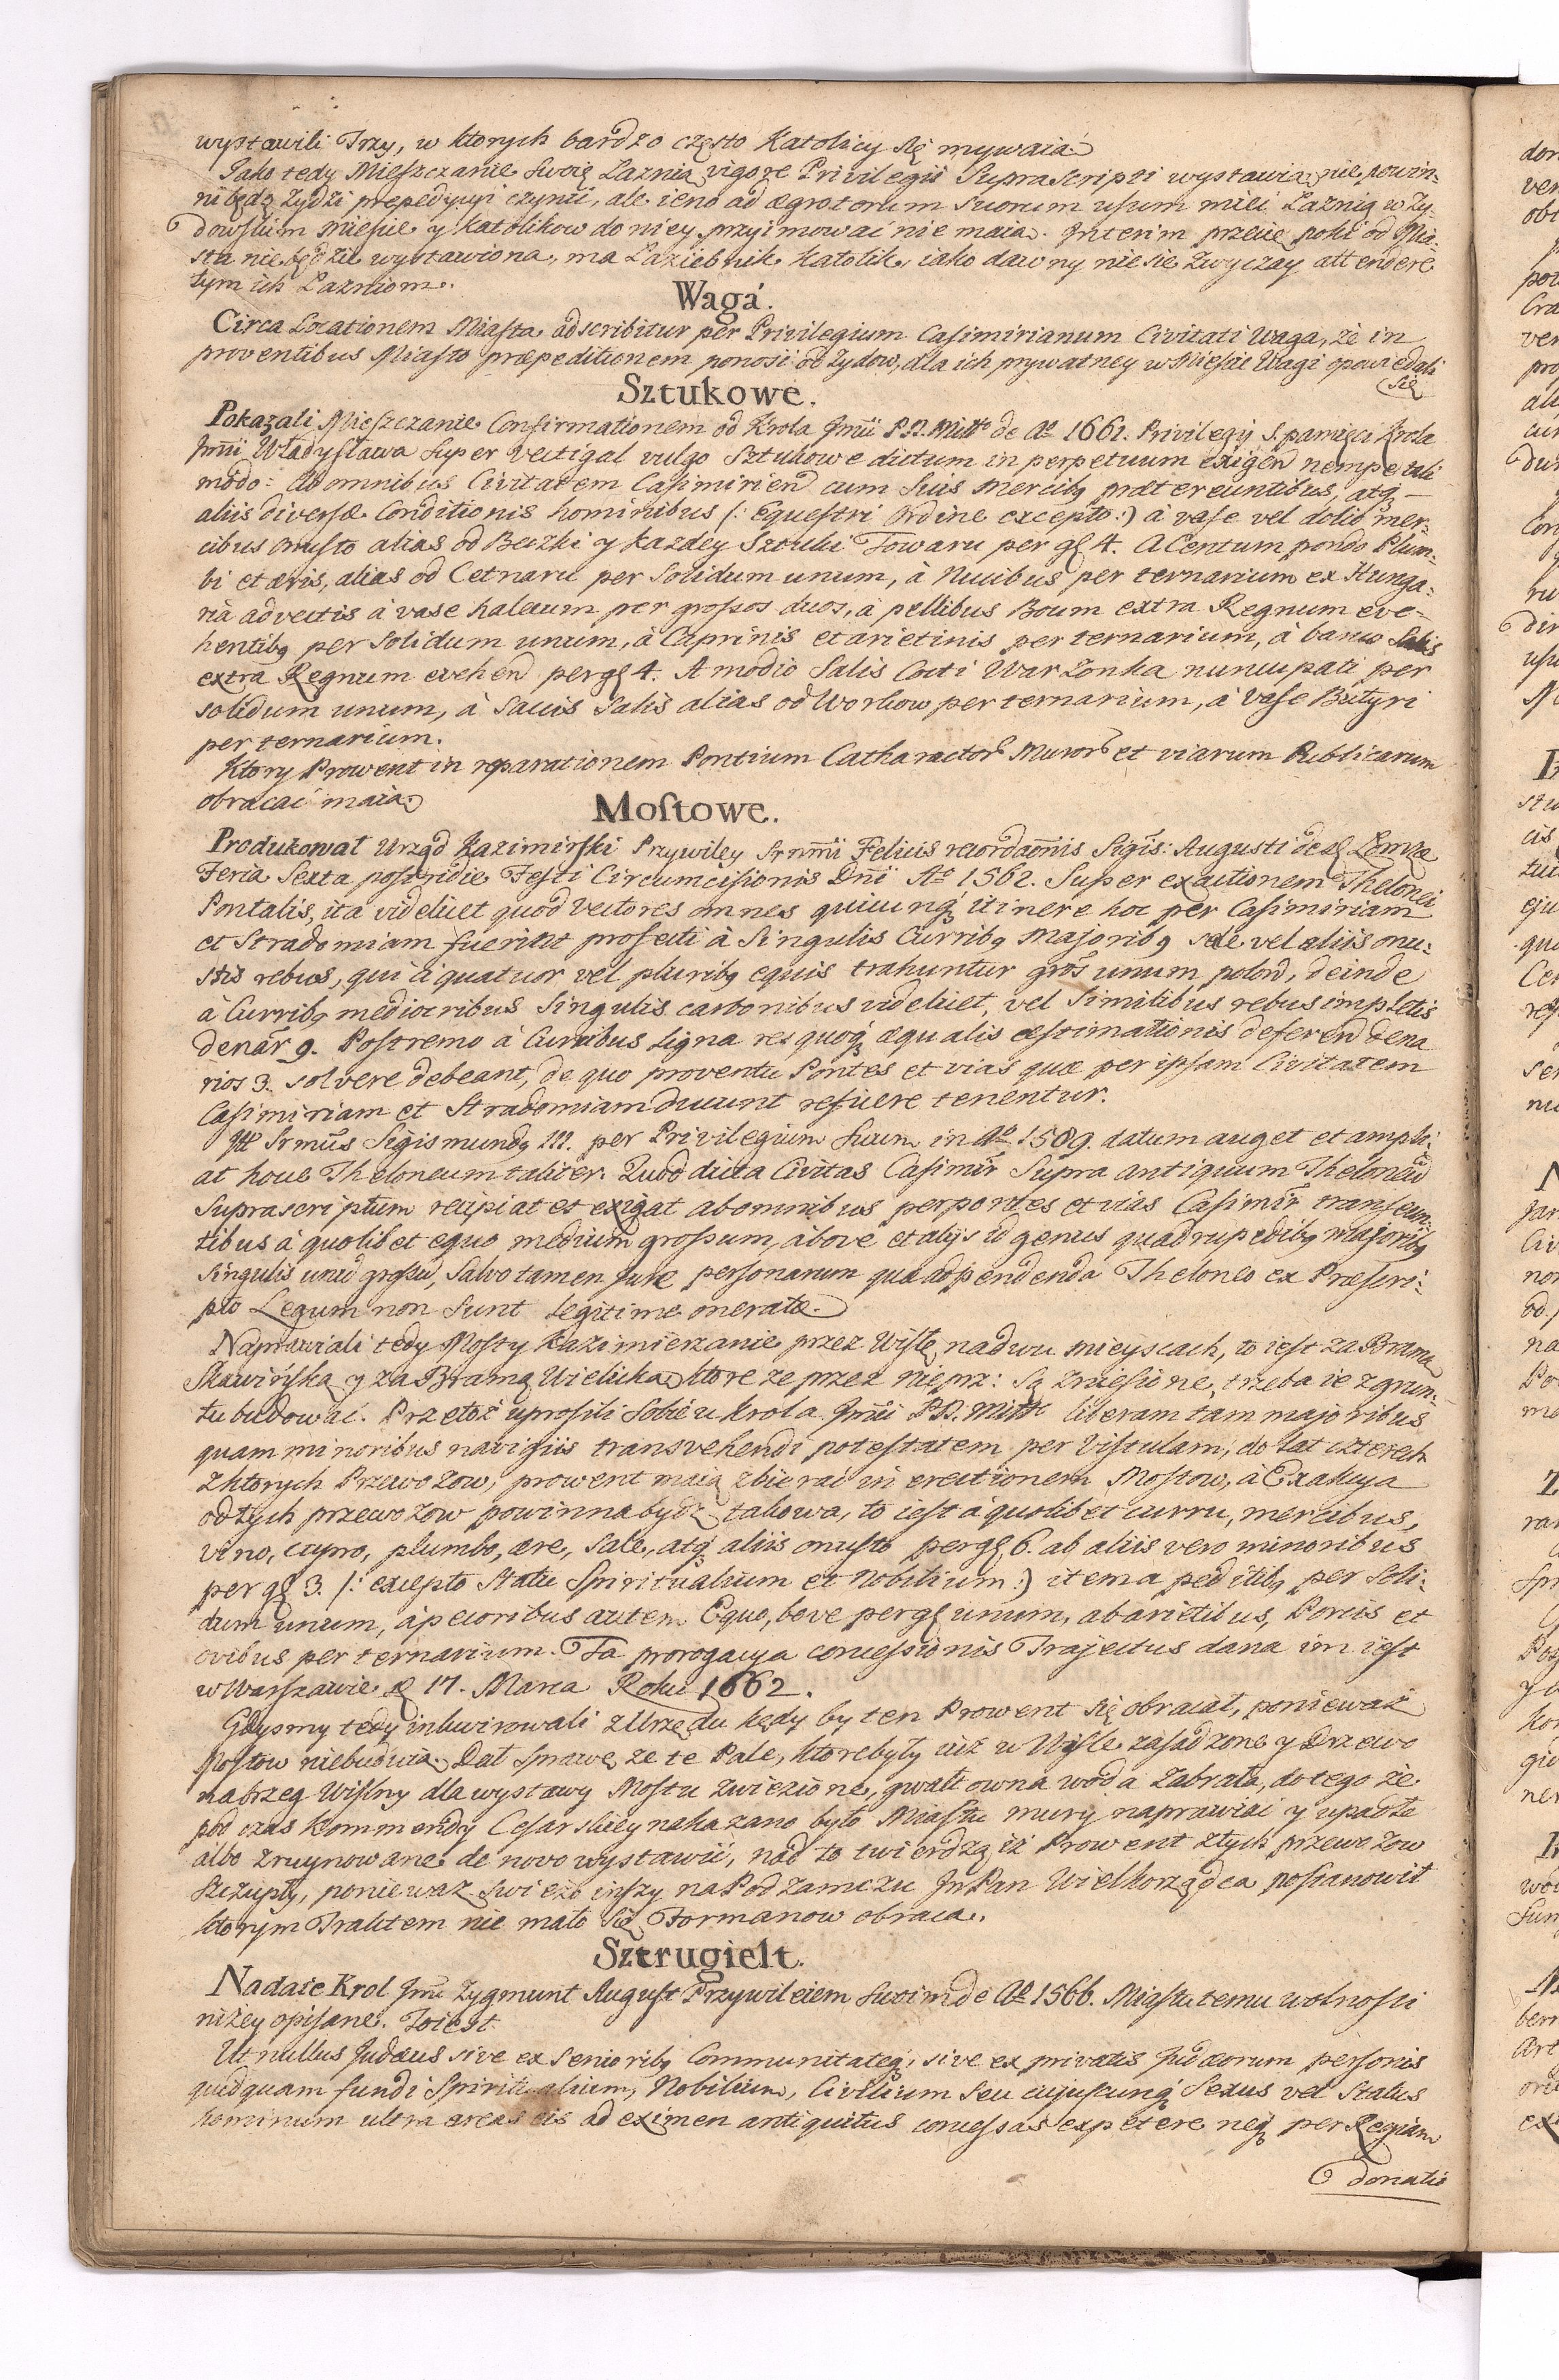 wystawili Trzy, w ktorych bardzo często Katolicy się mywaią.
Jako tedy Mieszczanie swoię Laznią vigore Privilegii Suprascripti wystawią, nie powin-
ni będą Zydzi prepedycyi czynić, ale ieno ad ægrotorum suorum usum mieć Laznią w Zy-
dowskim Mieście y Katolikow do niey przyimować nie maią. Interim przecię poki od Mia-
sta nie będzie wystawiona, ma Laziebnik Katolik, iako dawny niesie zwyczay attendere
tym ich Lazniom.
Waga.
Circa Locationem Miasta adscribitur per Privilegium Casimirianum Civitati Waga, że in
proventibus Miasto præpeditionem ponosi od Zydow, dla ich prywatney w Mieście Wagi opowiedali
się
Sztukowe.
Pokazali Mieszczanie Confirmationem od Krola Jmći P.N. Mitto de Ao 1661. Privilegij S. pamięci Krola
Jmći Władysława super vectigal vulgo Sztukowe dictum in perpetuum exigend nempe tali
modo: ab omnibus Civitatem Casimiriend cum suis mercibq prætereuntibus, atq –
aliis diversæ Conditionis hominibus (: Equestri Ordine excepto :) à vase vel dolio mer-
cibus onusto alias od Beczki y kazdey Sztuki Towaru per gl 4. A Centum pondo Plum-
bi et æris, alias od Cetnaru per solidum unum, à Nucibus per ternarium ex Hunga-
ria advectis à vase halecum per grossos duos, à pellibus Boum extra Regnum eve-
hentibq per solidum unum, à Caprinis et arietinis per ternarium, à banco Salis
extra Regnum evehend per gl 4. A modio Salis Cocti Warzonka nuncupati per
solidum unum, à Saccis Salis alias od Workow per ternarium, à vase Butyri
per ternarium.
Ktory Prowent in reparationem Pontium Catharactor Muror et viarum Publicarum
obracać maią.
Mostowe.
Produkował Urząd Kazimirski Przywiley Srnmi Felicis recordaonis Sigis: Augusti de Łomza
Feria Sexta postridie Festi Circumcisionis Dni Ao 1562. Super exactionem Thelonei
Pontalis, ita videlicet quod Vectores omnes quicunq itinere hoc per Casimiriam
et Stradomiam fuerint profecti à Singulis Curribq Majoribq sale vel aliis onu-
stis rebus, qui à quatuor vel pluribq equis trahuntur gros unum polon, deinde
à Curribq mediocribus Singulis carbonibus videlicet, vel similibus rebus impletis
denar 9. Postremo à Curribus Ligna res quoq æqualis æstimationis deferend dena
rios 3. solvere debeant, de quo proventu Pontes et vias quæ per ipsam Civitatem
Casimiriam et Stradomiam ducunt reficere tenentur.
Srmus Sigismundq III. per Privilegium suum in Ao 1589. datum auget et ampli-
at hocce Theloneum taliter. Quod dicta Civitas Casimir Supra antiquum Theloneu
Suprascriptum recipiat et exigat ab omnibus per pontes et vias Casimir transeun-
tibus à quolibet equo medium grossum, à bove et alijs id genus quadrupedibq Majoribq
singulis unu grossu, salvo tamen Jure personarum quæ ad pendenda Theloneo ex Præscri-
pto Legum non sunt legitime oneratæ.
Naprawiali tedy Mosty Kazimierzanie przez Wisłę na dwu mieyscach, to iest za Bramą
Skawińską y za Bramą Wielicką, ktore ze przez niepr: są zniesione, trzeba ie z grun-
tu budować. Przetoż uprosili sobie u Krola Jmći P.N. Mitto liberam tam majoribus
quam minoribus navigiis transvehendi potestatem per Vistulam, do lat czterech
z ktorych Przewozow, prowent maią zbierać in erectionem Mostow, à Exakcya
od tych przewozow powinna bydz takowa, to iest à quolibet curru, mercibus,
vino, cupro, plumbo, ære, sale, atq aliis onusto per gl 6. ab aliis vero minoribus
per gl 3. (: excepto Statu Spiritualium et Nobilium :) item a peditibq per soli-
dum unum, à pecoribus autem Equo, bove per gl unum, ab arietibus, Porcis et
ovibus per ternarium. Ta prorogacya concessionis Trajectus dana im iest
w Warszawie d 17. Marca Roku 1662.
Gdysmy tedy inkwirowali z Urzędu kędy by ten Prowent się obracał, ponieważ
Mostow niebuduią. Dał sprawę, ze te Pale, ktore były już w Wiśle zasadzone y Drzewo
na brzeg Wislny dla wystawy Mostu zwiezione, gwałtowna woda zabrała, do tego że
pod czas Kommendy Cesarskiey nakazano było Miastu mury naprawiać y upadłe
albo zruynowane de novo wystawić, nad to twierdzą iż Prowent z tych przewozow
szczupły, poniewaz swiezo inszy na Podzamczu JmPan Wielkorządca postanowił
ktorym Traktem nie mało się Formanow obraca.
Sztrugielt.
Nadałe Krol Jmć Zygmunt August Przywileiem swoim de Ao 1566. Miastu temu wolności
niżey opisane. Toiest
Ut nullus Judæus sive ex Senioribq Communitateq, sive ex privatis Judæorum personis
quidquam fundi Spiritualium, Nobilium, Civilium seu cujuscunq Sexus vel Status
hominum ultra areas eis ad eximen antiquitus concessas expetere neq per Regiam
donatio